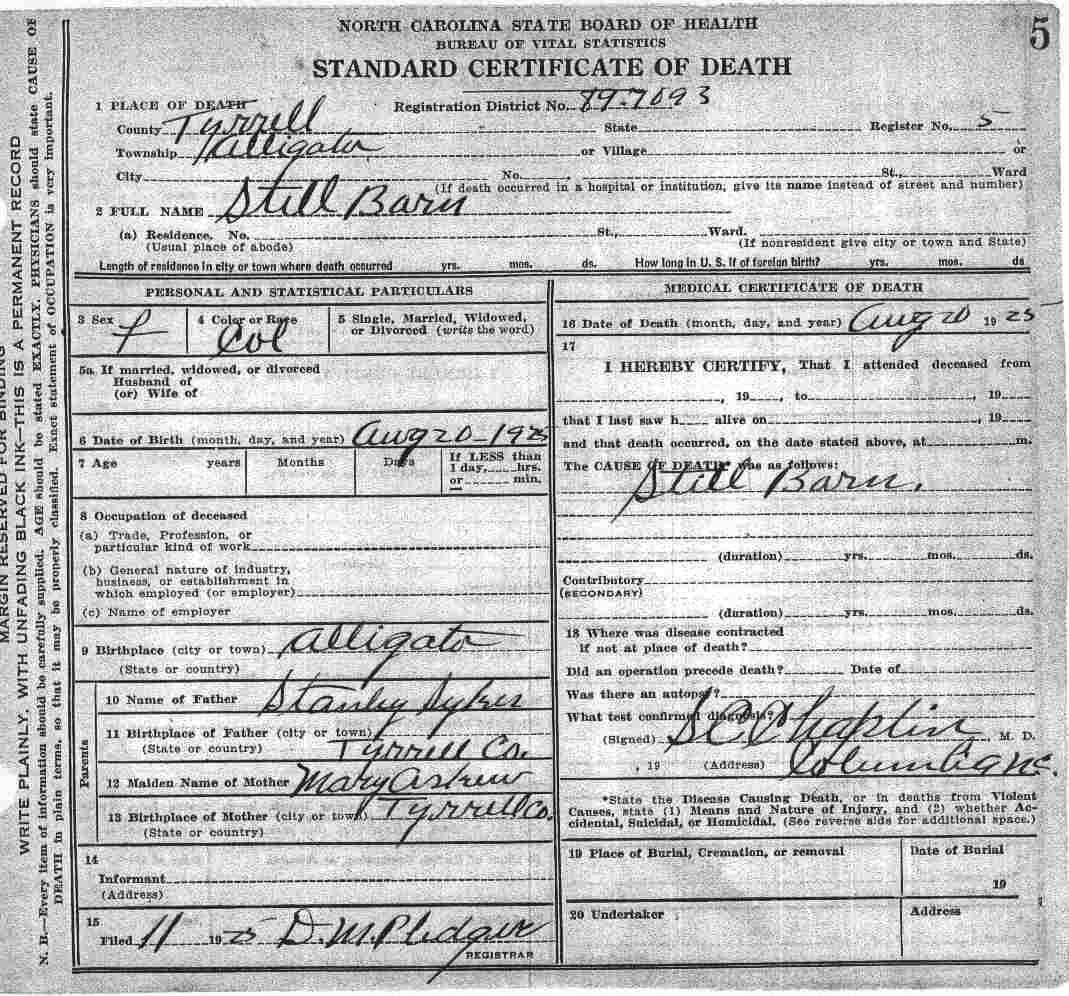 NORTH CAROLINA STATE BOARD OF HEALTH
BUREAU OF VITAL STATISTICS
STANDARD CERTIFICATE OF DEATH
5
1 PLACE OF DEATH
Registration District No. 89-7093
County Tyrrell State Register No. 5
Township Alligator or Village or
City No. St., Ward
(If death occurred in a hospital or institution, give its name instead of street and number)
2 FULL NAME Still Barn
(a) Residence. No. St., Ward.
(Usual place of abode) (If nonresident give city or town and State)
Length of residence in city or town where death occurred yrs. mos. ds. How long in U. S. if of foreign birth? yrs. mos. ds
PERSONAL AND STATISTICAL PARTICULARS
3 Sex f
4 Color or Race Col
5 Single, Married, Widowed, or Divorced (write the word)
5a. If married, widowed, or divorced
Husband of
(or) Wife of
6 Date of Birth (month, day, and year) Aug 20-1925
7 Age years Months Days If LESS than
1 day, hrs.
or min.
8 Occupation of deceased
(a) Trade, Profession, or
particular kind of work
(b) General nature of industry,
business, or establishment in
which employed (or employer)
(c) Name of employer
9 Birthplace (city or town) Alligato
(State or country)
Parents
10 Name of Father Stanly Sykes
11 Birthplace of Father (city or town)
(State or country) Tyrrell Co.
12 Maiden Name of Mother Mary Askew
13 Birthplace of Mother (city or town) Tyrrell Co.
(State or country)
14
Informant
(Address)
15
Filed 11 1925 D. M. Pledger
REGISTRAR
MEDICAL CERTIFICATE OF DEATH
16 Date of Death (month, day, and year) Aug 20 1925
17
I HEREBY CERTIFY, That I attended deceased from
, 19 , to , 19
that I last saw h alive on , 19
and that death occurred, on the date stated above, at m.
The CAUSE OF DEATH* was as follows:
Still Barn.
(duration) yrs. mos. ds.
Contributory
(SECONDARY)
(duration) yrs. mos. ds.
18 Where was disease contracted
if not at place of death?
Did an operation precede death? Date of
Was there an autopsy?
What test confirmed diagnosis?
(Signed) S C Chaplin M. D.
, 19 (Address) Columbia N.C.
*State the Disease Causing Death, or in deaths from Violent
Causes, state (1) Means and Nature of Injury, and (2) whether Ac-
cidental, Suicidal, or Homicidal. (See reverse side for additional space.)
19 Place of Burial, Cremation, or removal
Date of Burial
19
20 Undertaker
Address
MARGIN RESERVED FOR BINDING
WRITE PLAINLY, WITH UNFADING BLACK INK—THIS IS A PERMANENT RECORD
N. B.—Every item of information should be carefully supplied. AGE should be stated EXACTLY. PHYSICIANS should state CAUSE OF
DEATH in plain terms, so that it may be properly classified. Exact statement of OCCUPATION is very important.